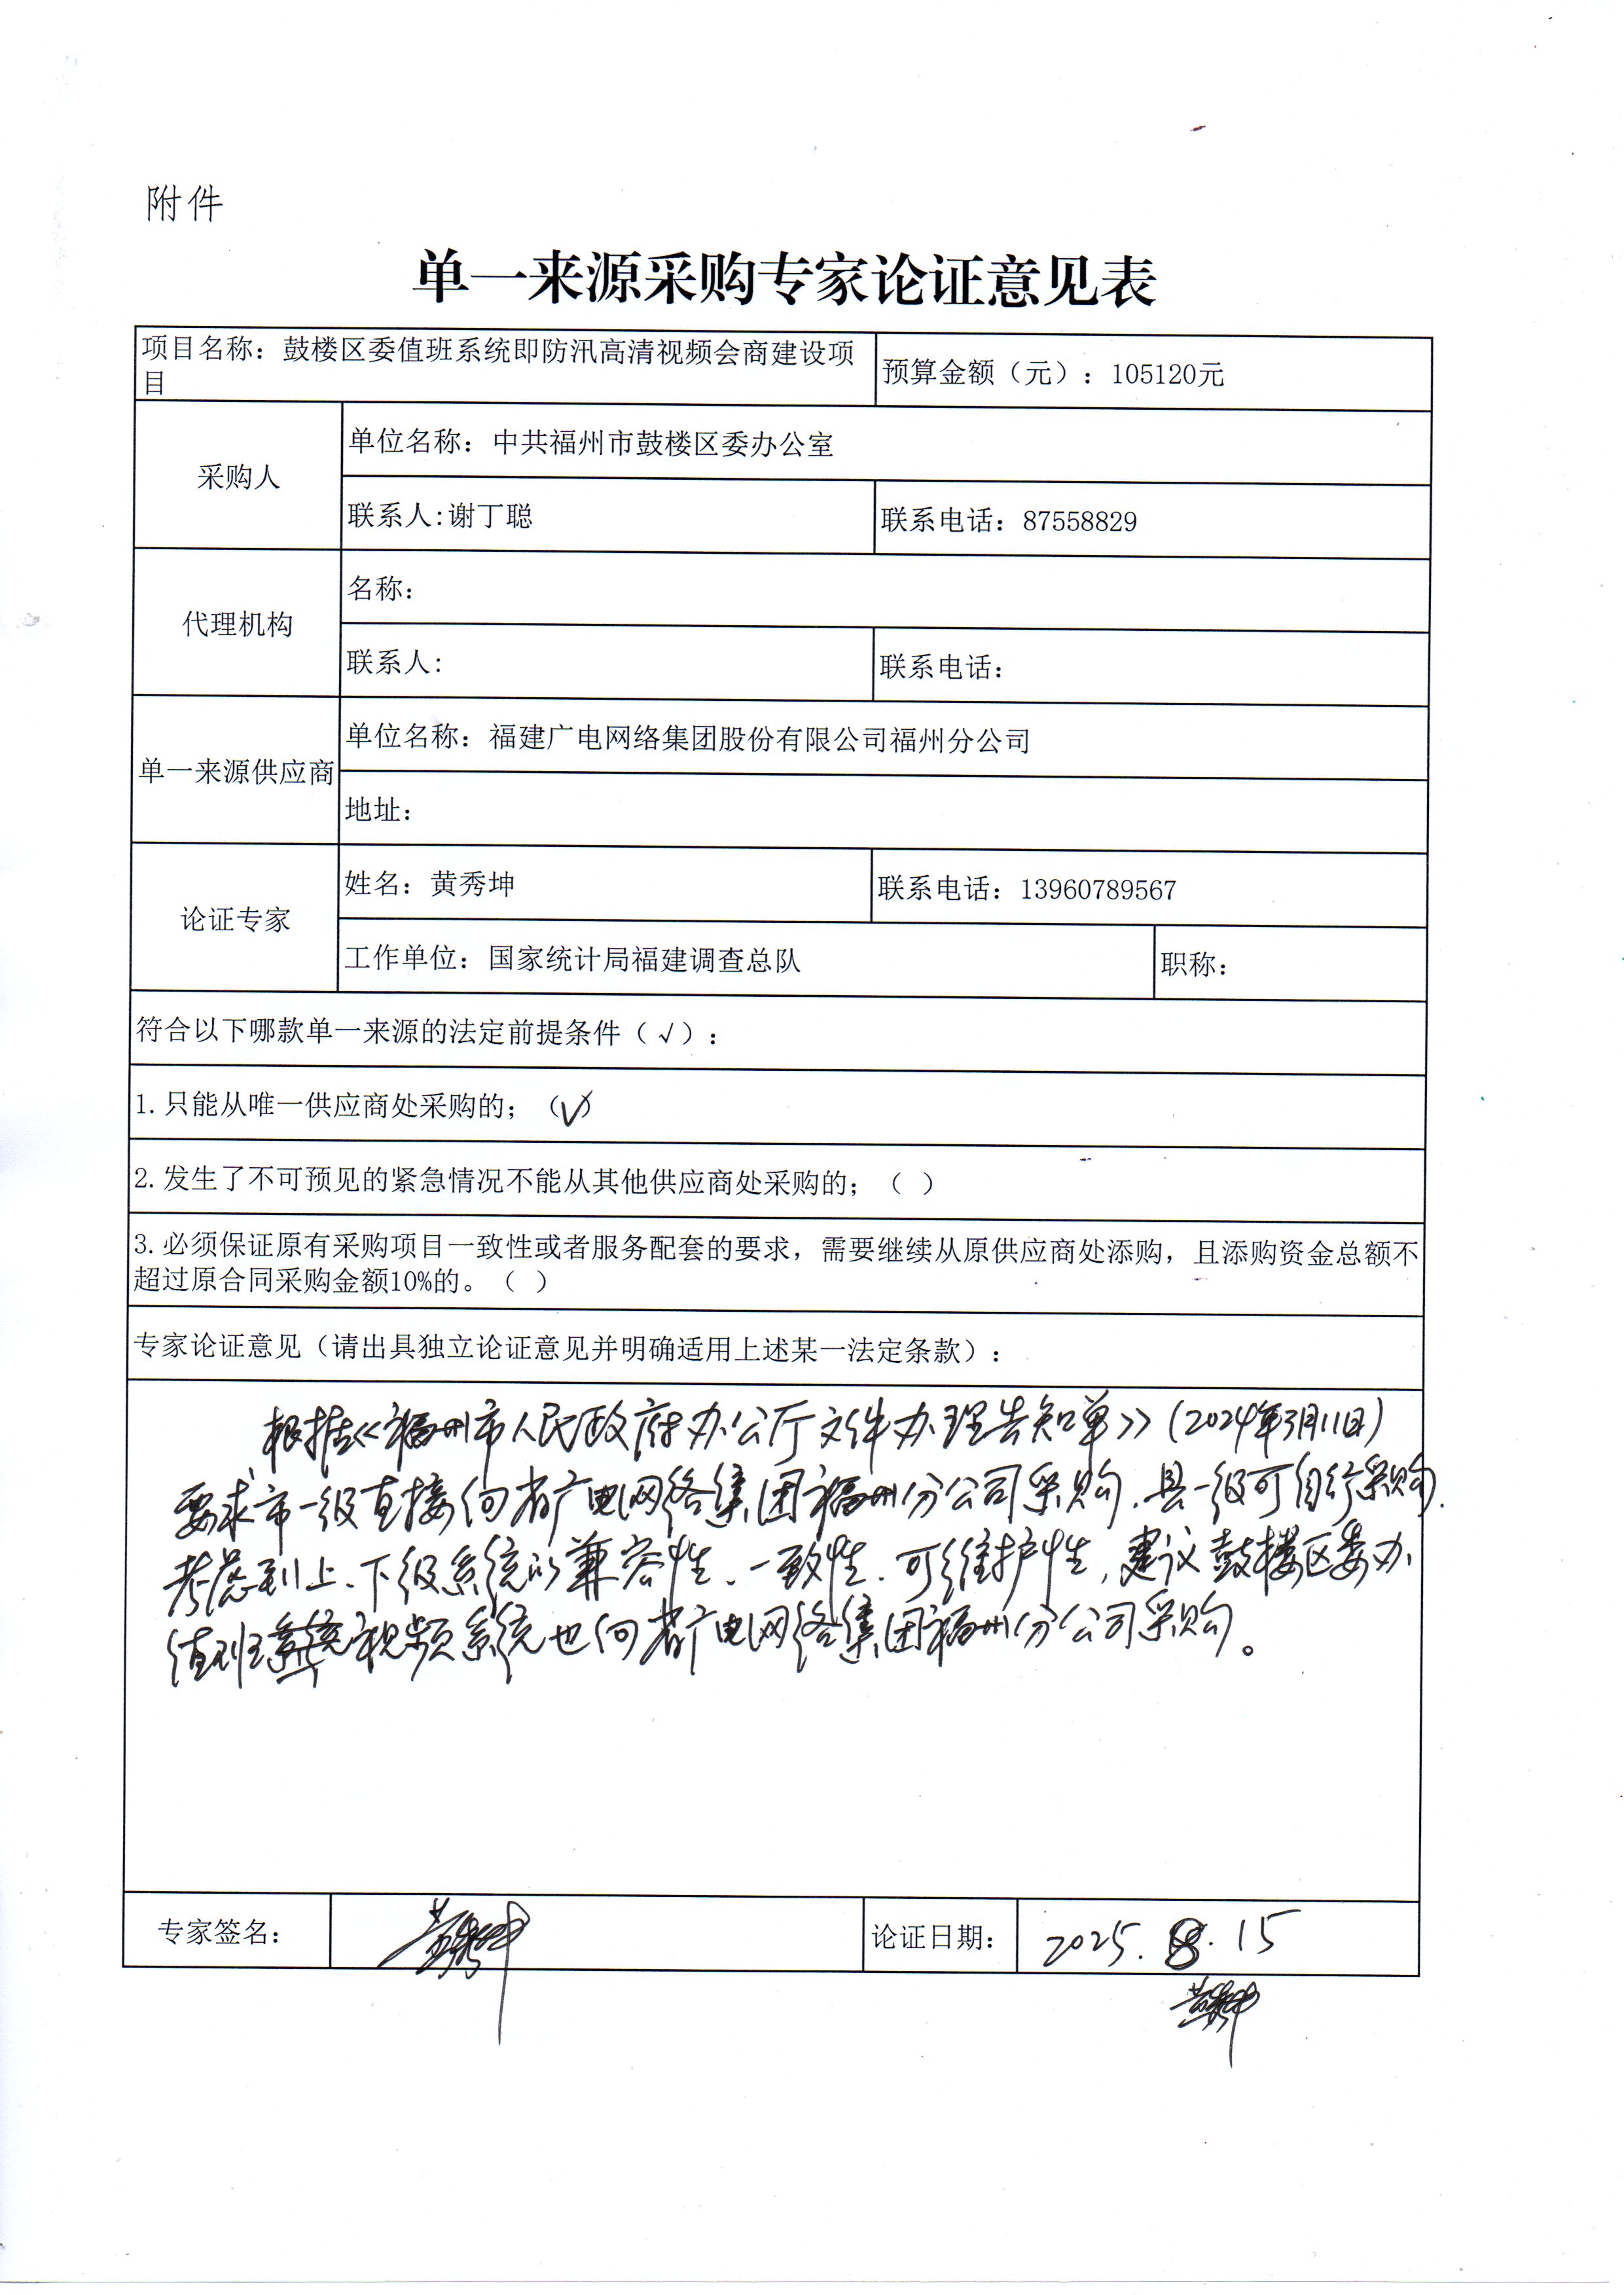 附件
单一来源采购专家论证意见表
项目名称：鼓楼区委值班系统即防汛高清视频会商建设项
目
预算金额（元）：105120元
采购人
单位名称：中共福州市鼓楼区委办公室
联系人:谢丁聪
联系电话：87558829
代理机构
名称：
联系人:
联系电话：
单一来源供应商
单位名称：福建广电网络集团股份有限公司福州分公司
地址：
论证专家
姓名：黄秀坤
联系电话：13960789567
工作单位：国家统计局福建调查总队
职称：
符合以下哪款单一来源的法定前提条件（√）：
1.只能从唯一供应商处采购的；（√）
2.发生了不可预见的紧急情况不能从其他供应商处采购的；（ ）
3.必须保证原有采购项目一致性或者服务配套的要求，需要继续从原供应商处添购，且添购资金总额不
超过原合同采购金额10%的。（ ）
专家论证意见（请出具独立论证意见并明确适用上述某一法定条款）：
根据《福州市人民政府办公厅文件办理告知单》（2024年3月11日）
要求市一级直接向省广电网络集团福州分公司采购，县一级可自行采购.
考虑到上、下级系统的兼容性、一致性、可维护性，建议鼓楼区委办
值班视频系统也向省广电网络集团福州分公司采购。
专家签名：
黄秀坤
论证日期：
2025.8.15
黄秀坤